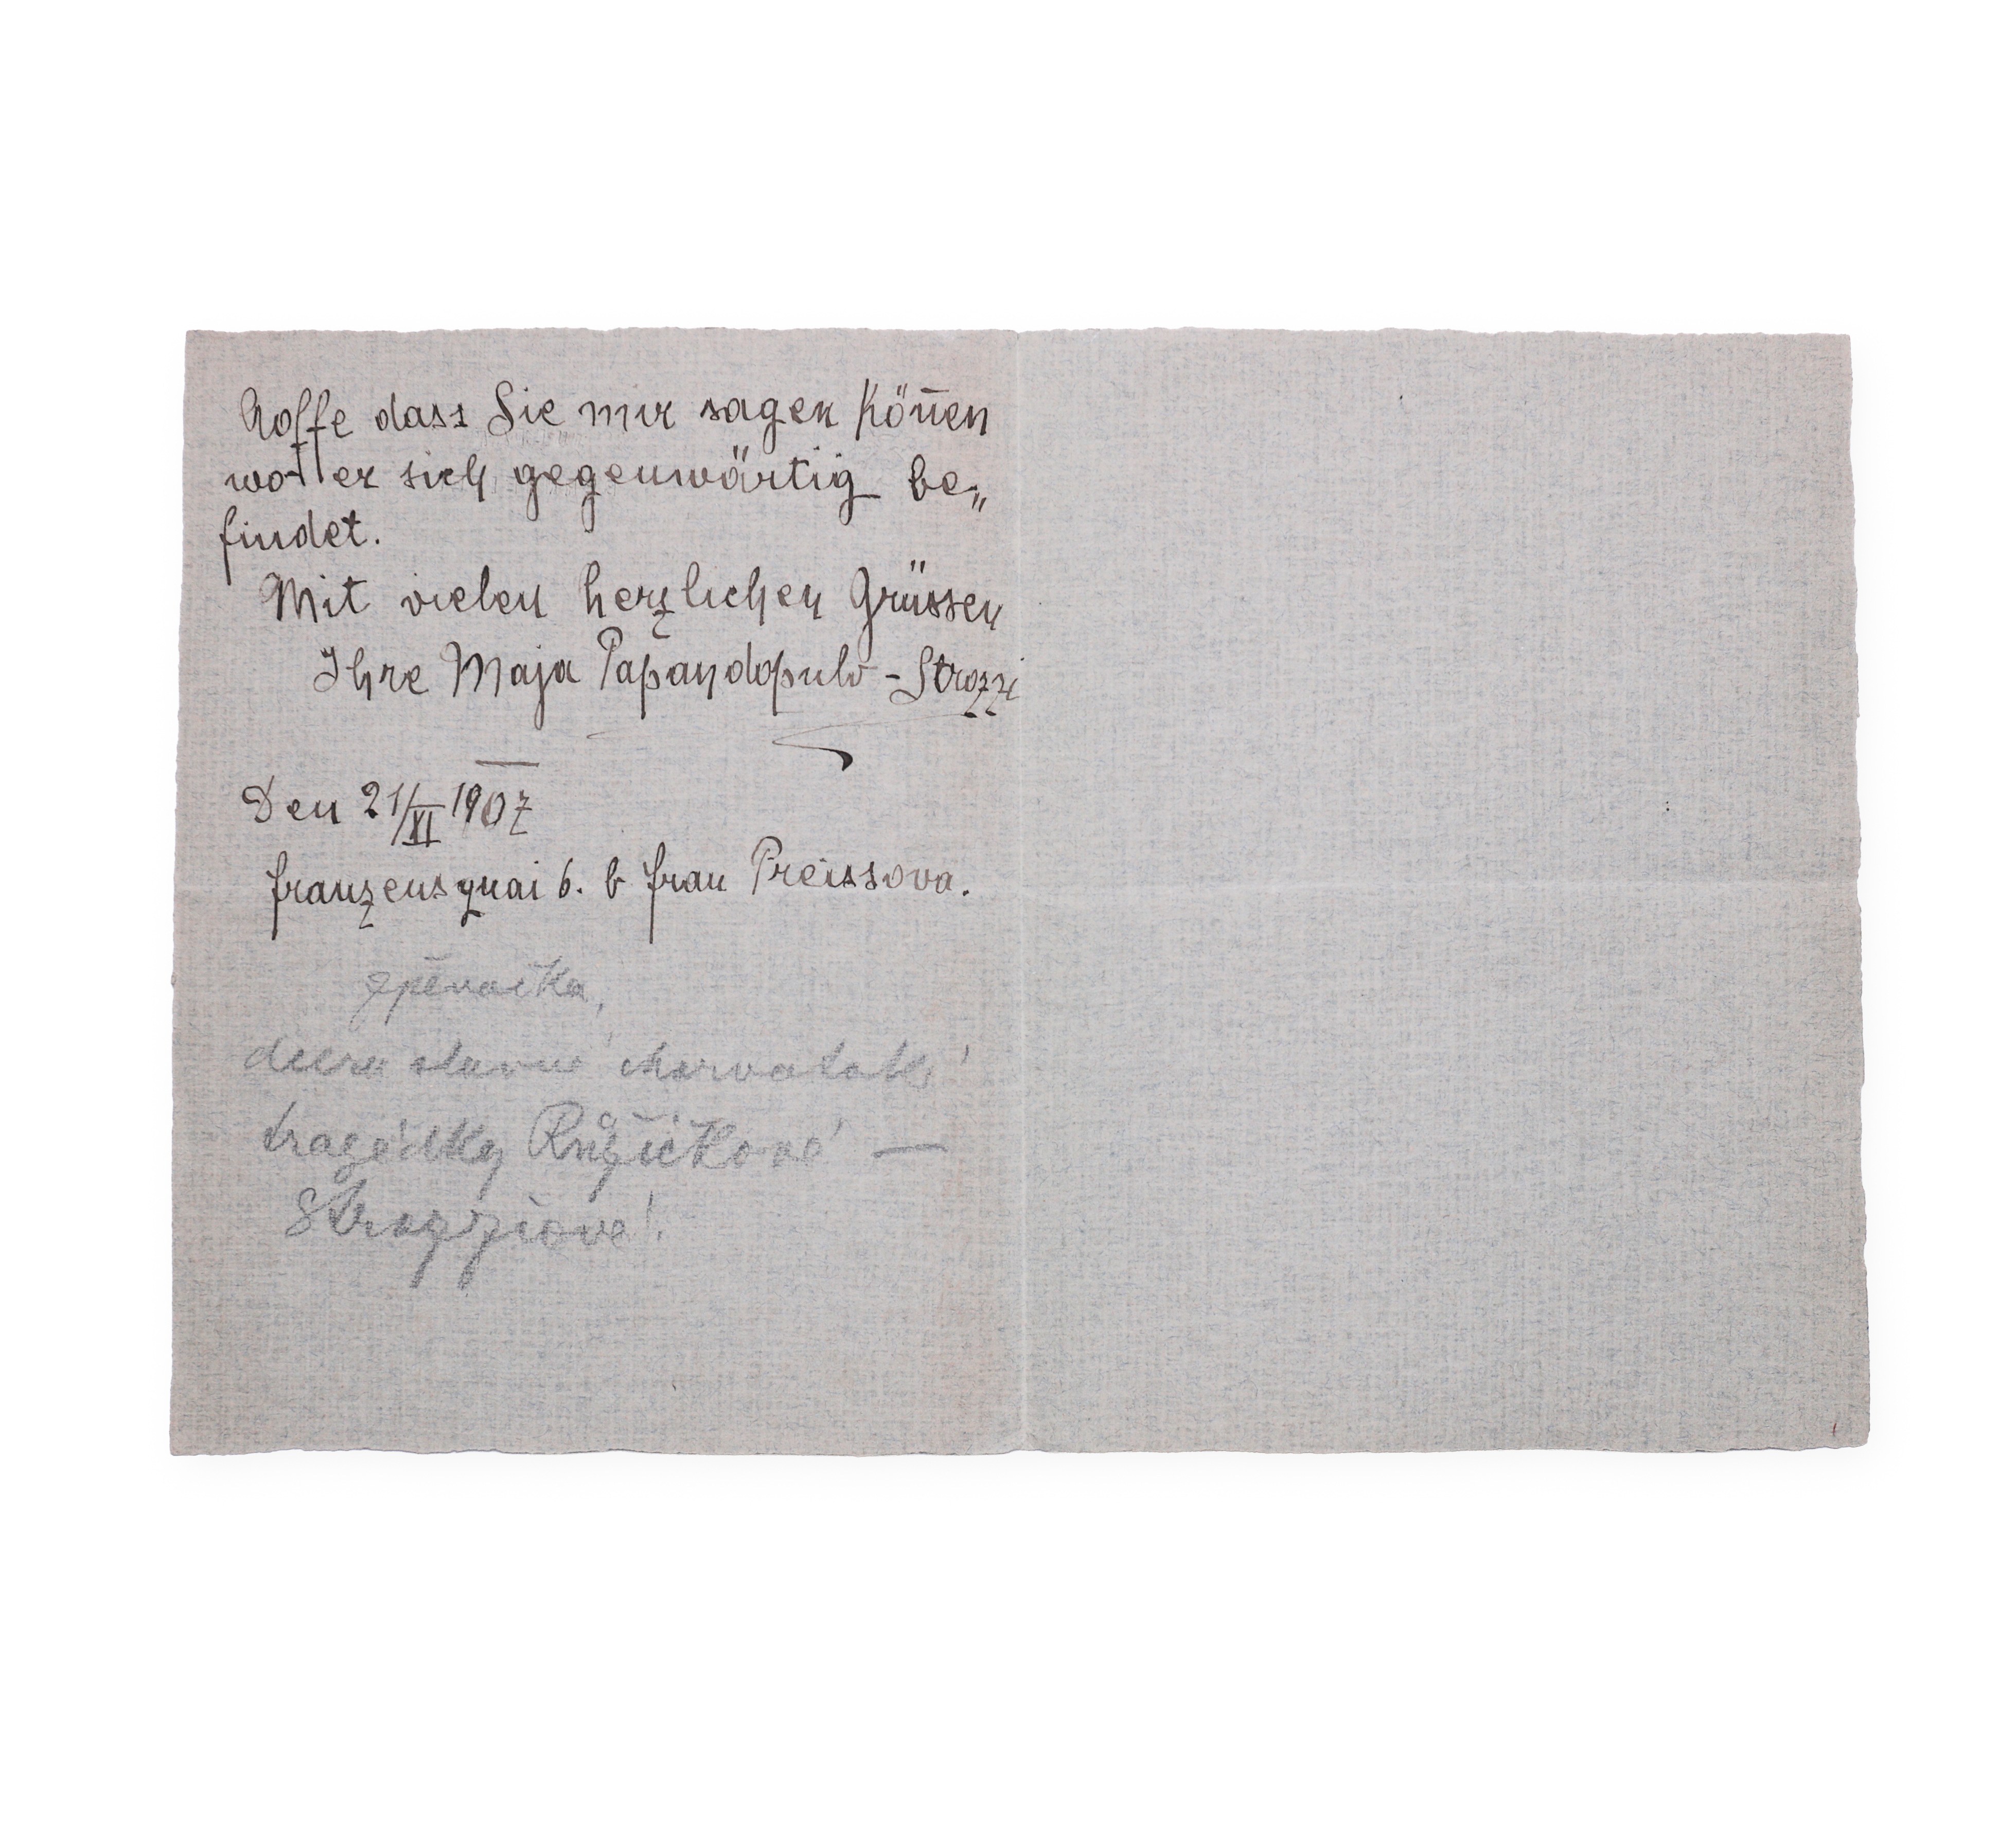 Hoffe dass Sie mir sagen köñen
wo er sich gegenwärtig be„
findet.
Mit vielen herzlichen Grüssen
Ihre Maja Papandopulo - Strozzi
Den 21/XI 1907
Franzensquai 6. b Frau Preissova.
zpěvačka,
dcera slavné charvatské
tragédky Růžičkové —
Strozziové!